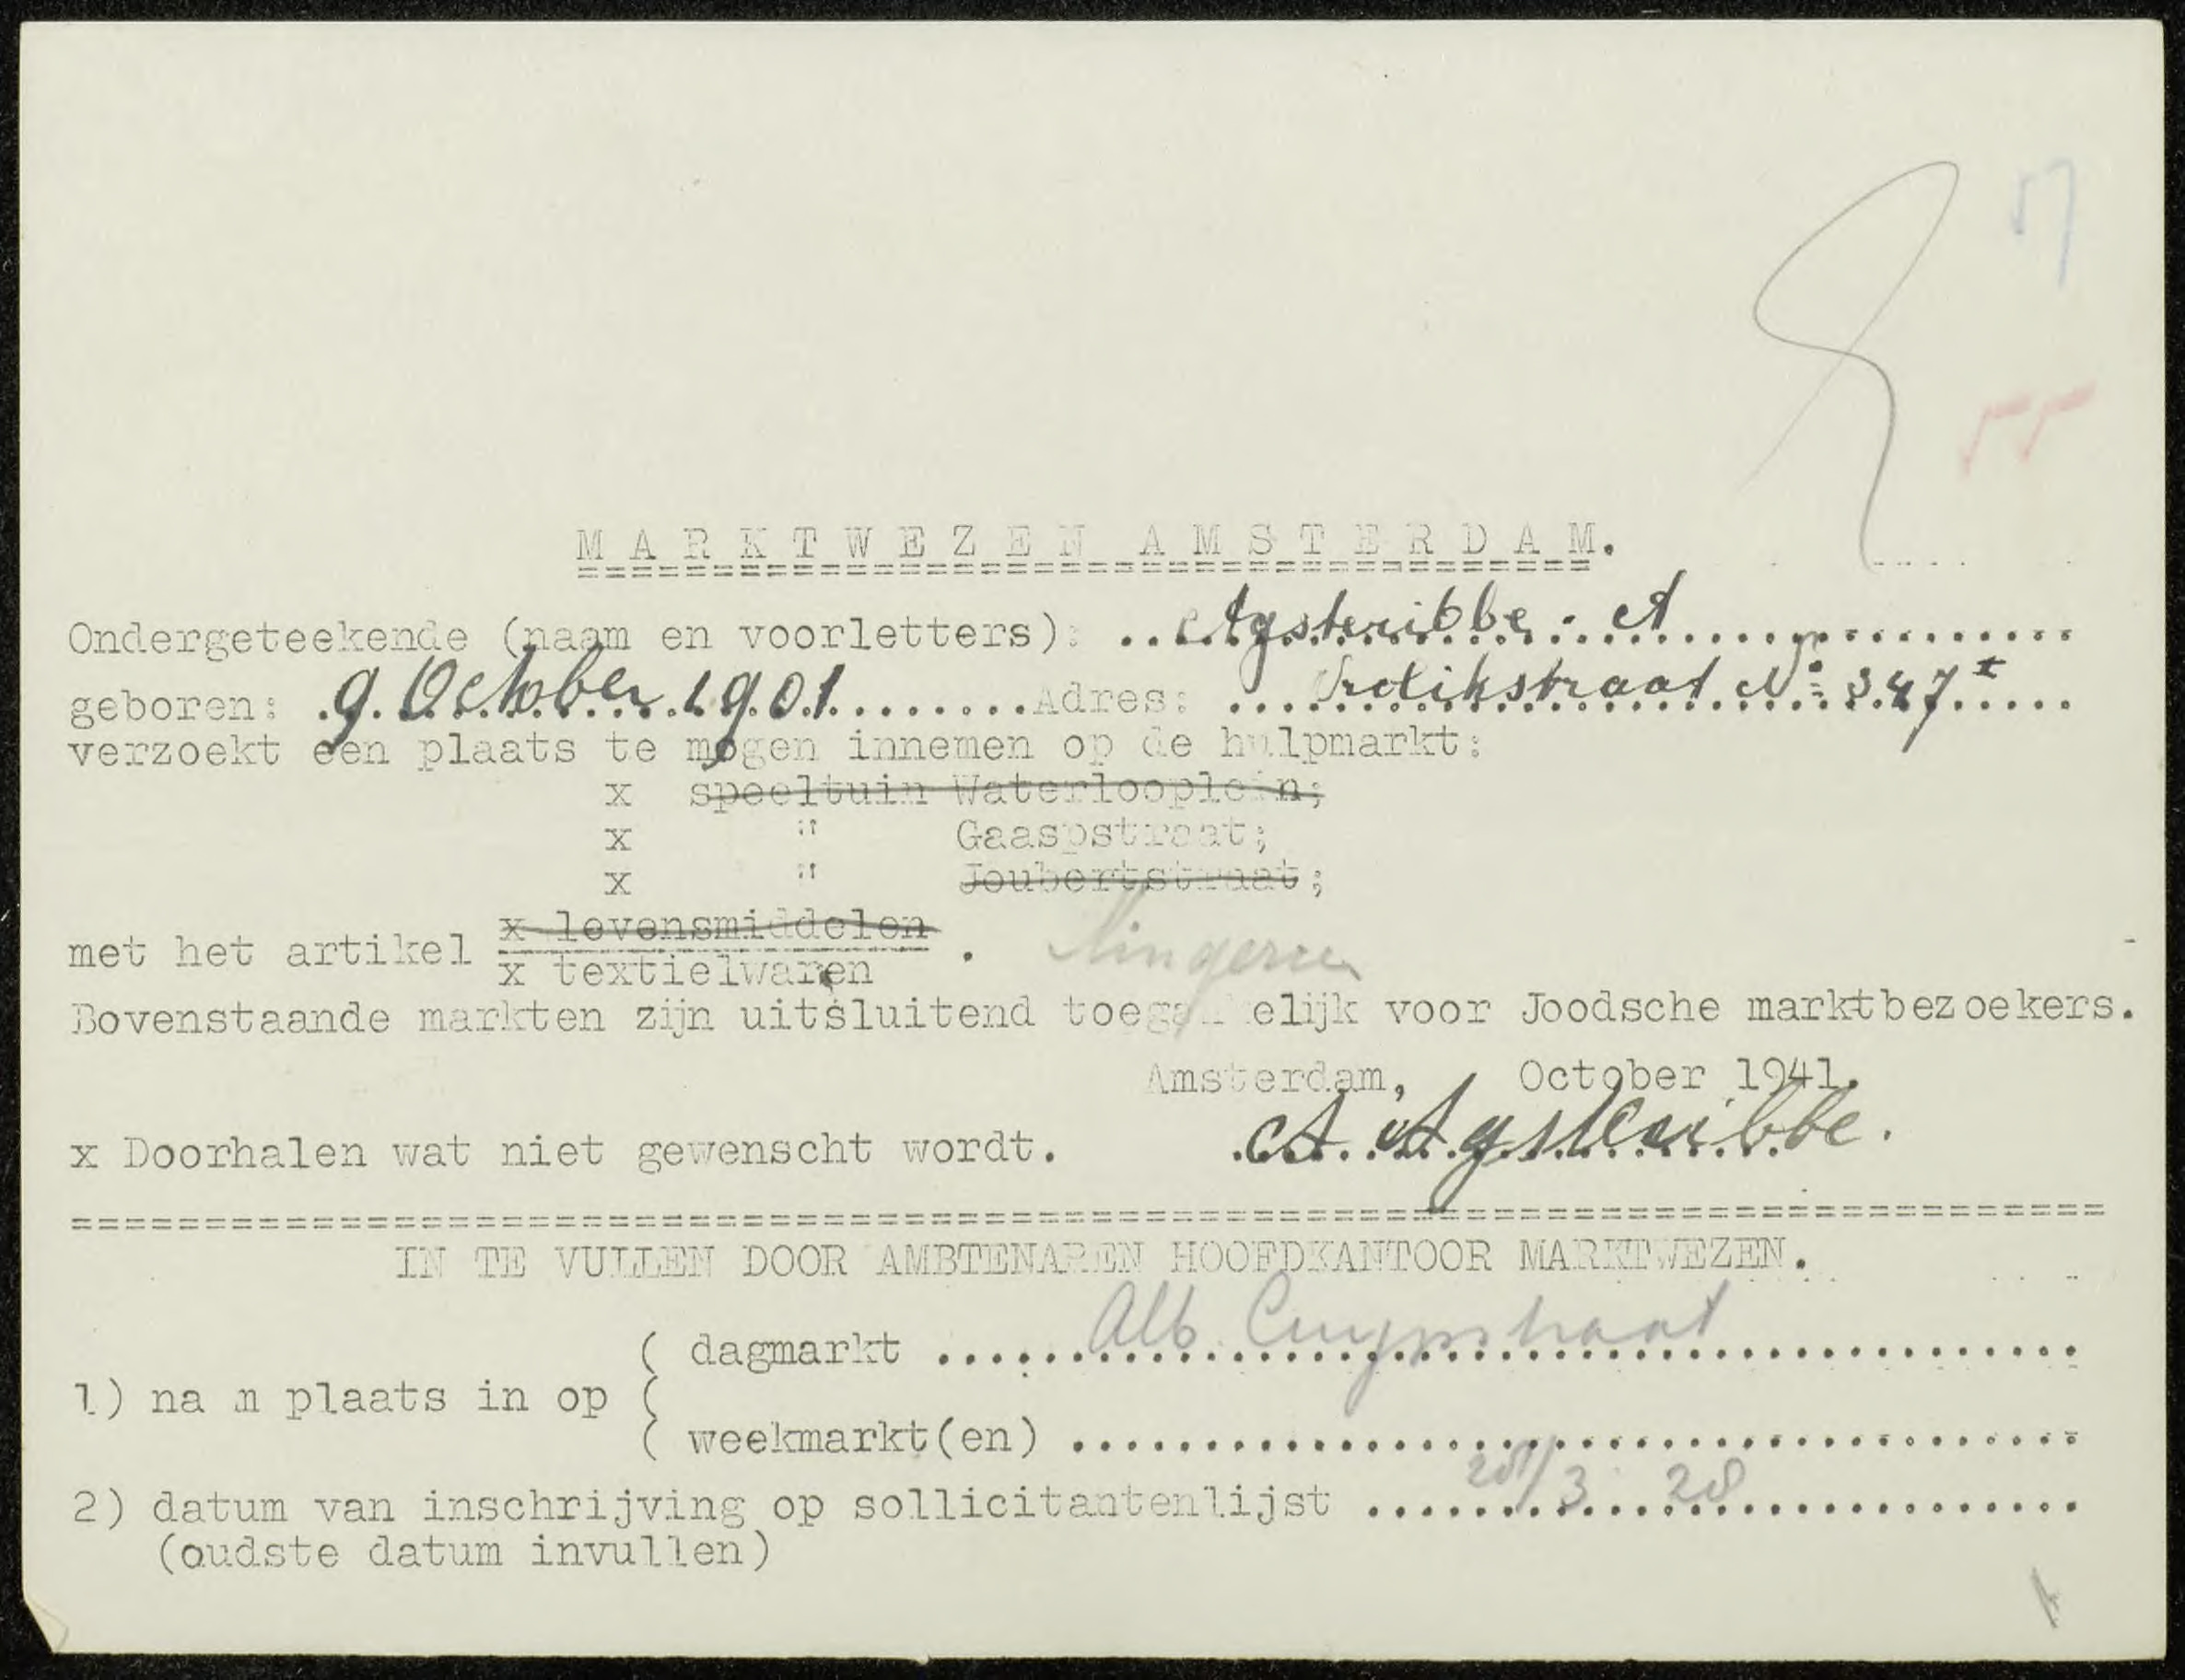 MARKTWEZEN AMSTERDAM.
Ondergeteekende (naam en voorletters): Agsteribbe. A
geboren: 9 October 1901 Adres: Vrolikstraat No 347 I
verzoekt een plaats te mogen innemen op de hulpmarkt:
x speeltuin Waterlooplein;
x " Gaaspstraat;
x " Joubertstraat;
x levensmiddelen
met het artikel . lingerie
x textielwaren
Bovenstaande markten zijn uitsluitend toegankelijk voor Joodsche marktbezoekers.
Amsterdam, October 1941.
x Doorhalen wat niet gewenscht wordt. A Agsteribbe.
IN TE VULLEN DOOR AMBTENAREN HOOFDKANTOOR MARKTWEZEN.
( dagmarkt Alb. Cuypstraat
1) nam plaats in op (
( weekmarkt(en)
2) datum van inschrijving op sollicitantenlijst 28/3 28
(oudste datum invullen)